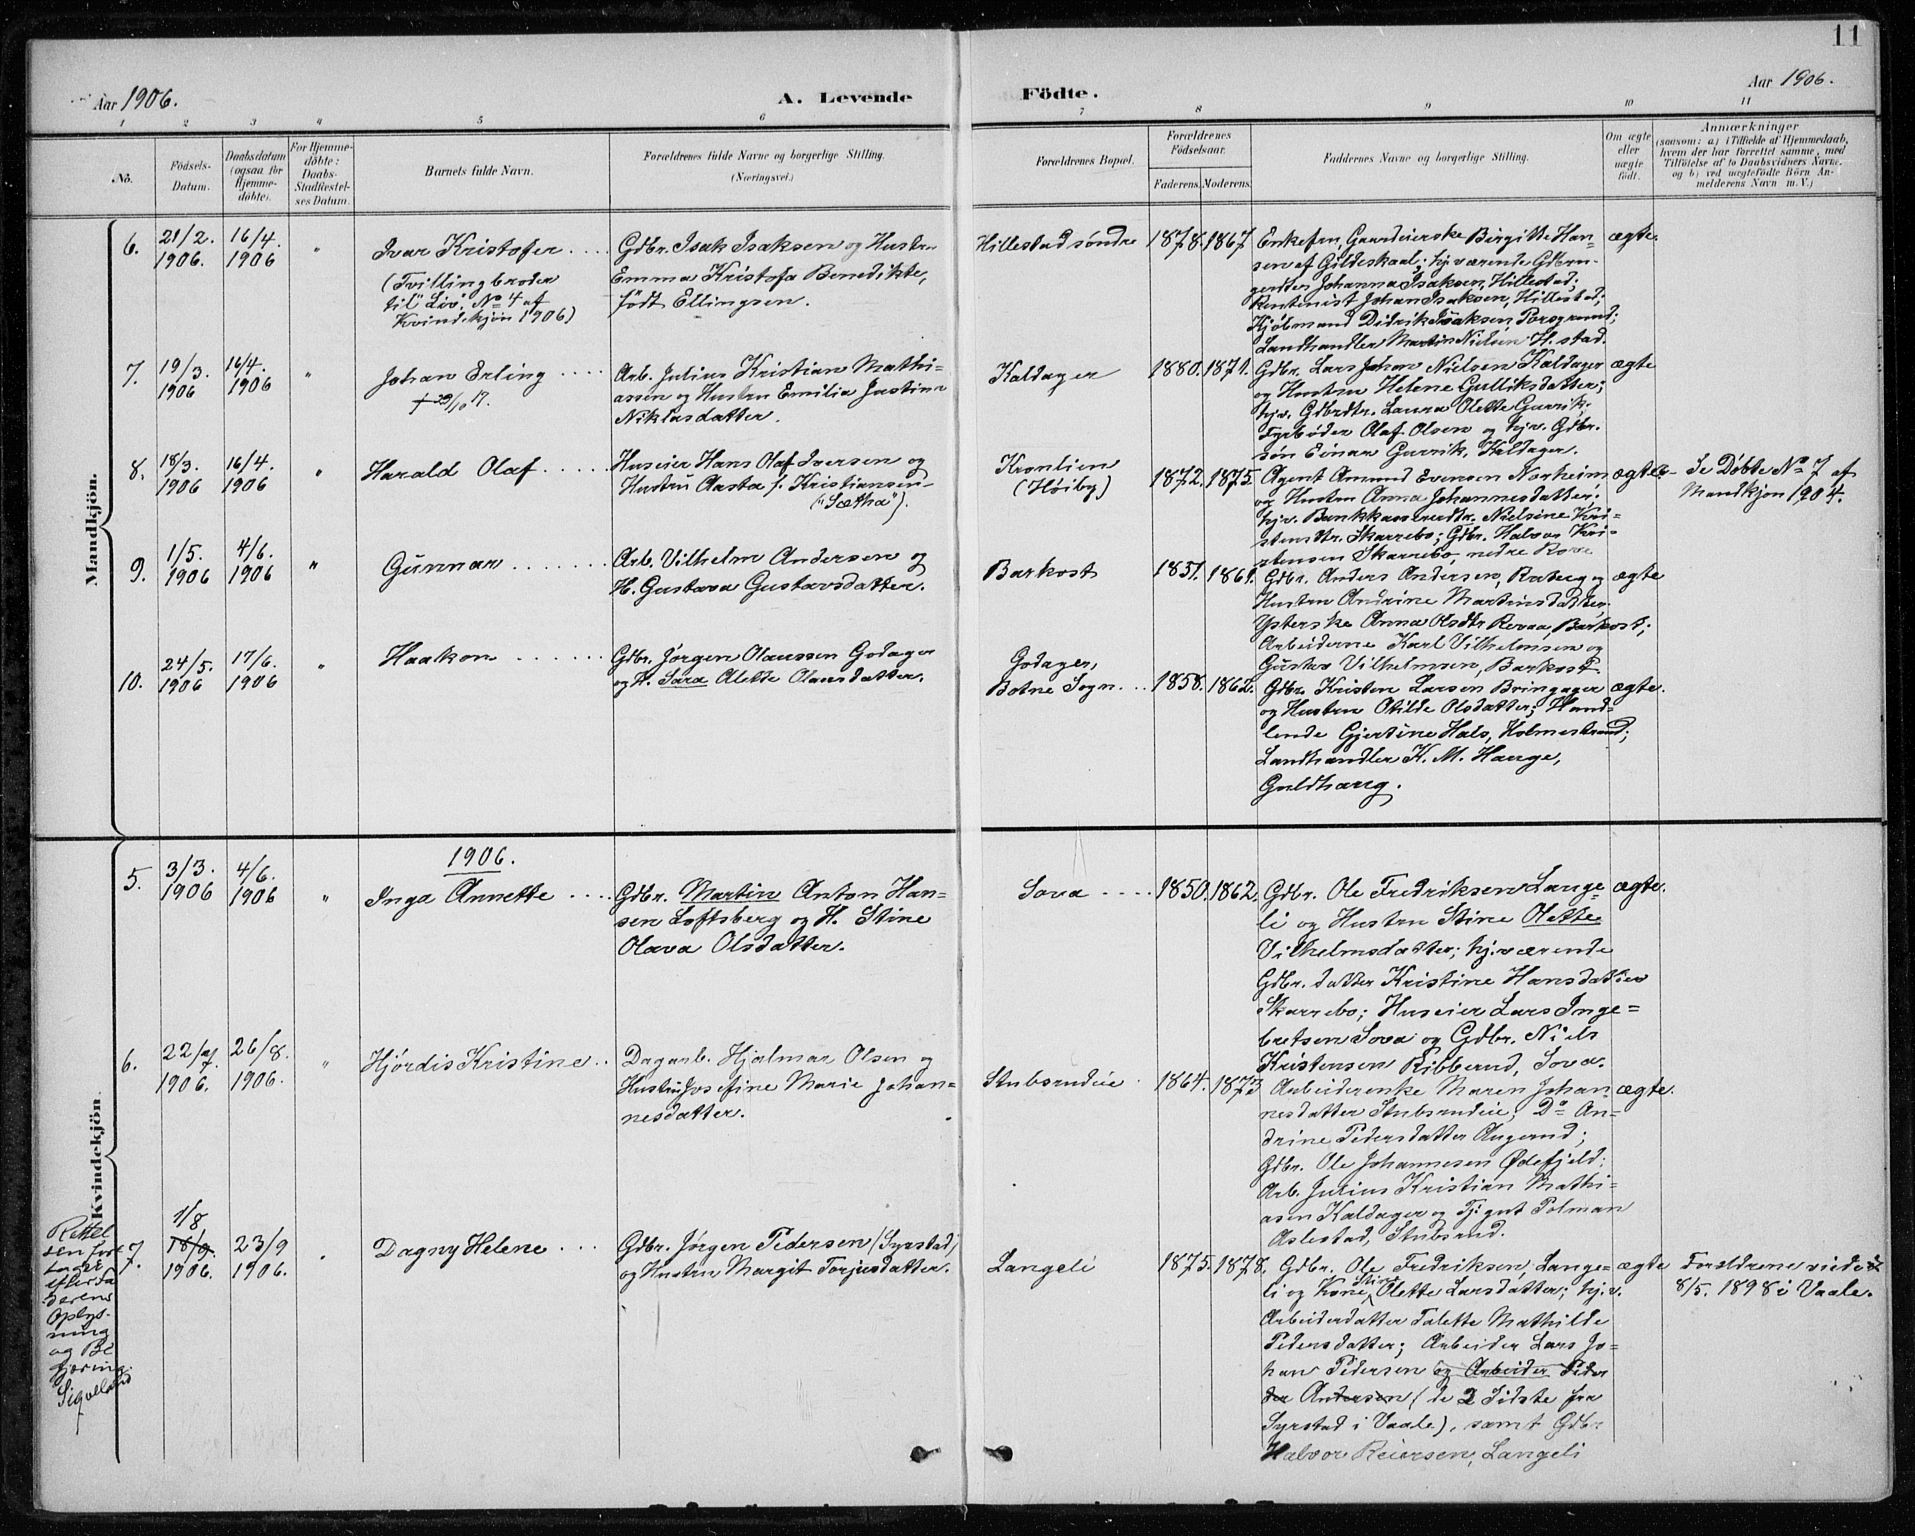 11
Aar 1906.
A. Levende
Födte.
Aar 1906.
1 2 3 4 5 6 7 8 9 10 11
No.
Födsels-
Datum.
Daabsdatum
(ogsaa for
Hjemme-
döbte).
For Hjemme-
döbte:
Daabs-
Stadfæstel-
ses Datum.
Barnets fulde Navn.
Forældrenes fulde Navne og borgerlige Stilling.
(Næringsvei.)
Forældrenes Bopæl.
Forældrenes
Fødselsaar.
Faderens. Moderens.
Faddernes Navne og borgerlige Stilling.
Om ægte
eller
uægte
födt.
Anmærkninger
(saasom: a) i Tilfælde af Hjemmedaab,
hvem der har forrettet samme, med
Tilføielse af to Daabsvidners Navne.
og b) ved uægtefödte Börn An-
melderens Navn m. V.)
Mandkjön.
6.
21/2.
1906.
16/4.
1906
"
Ivar Kristofer ....
(Tvillingbroder
til "Liv", No 4 af
Kvindekjön 1906)
Gdbr. Isak Isaksen og Hustru
Emma Kristofa Benedikte,
født Ellingsen.
Hillestad söndre
1878. 1867.
Enkefru, Gaardeierske Birgitte Han-
sen af Gildeskaal; hj.værende Gdbru-
gerdtr. Johanna Isaksen, Hillestad;
Rentenist Johan Isaksen, Hillestad;
Kjöbmand Didrik Isaksen, Porsgrund;
Landhandler Martin Nielsen H.stad.
ægte.
7.
19/3.
1906
16/4.
1906
"
Johan Erling ....
+ 29/10 17.
Arb. Julius Kristian Mathi-
assen og Hustru Emilia Justina
Niklasdatter.
Kaldager
1880. 1871.
Gdbr. Lars Johan Nielsen Kaldager
og Hustru Helene Gulliksdatter;
hjv. Gdbrdtr. Laura Olette Gurrik,
Fyrböder Olaf Olsen og hjv. Gdbr.
søn Einar Gurrik, Kaldager.
ægte
8.
18/3.
1906
16/4.
1906
"
Harald Olaf .....
Huseier Hans Olaf Iversen og
Hustru Aasta f. Kristiansen
("Sætha").
Kronlien
(Høiby)
1872. 1875.
Agent Amund Evensen Norheim
og Hustru Anna Johannesdatter;
hjv. Bankkassererdtr. Nielsine Kri-
stensdtr. Skarrebo; Gdbr. Halvor Kri-
stensen Skarrebo, nedre Rove
ægte.
Se Døbte No 7 af
Mandkjøn 1904.
9.
1/5.
1906
4/6.
1906
"
Gunnar .......
Arb. Vilhelm Andersen og
H. Gustava Gustavsdatter.
Barkost
1851. 1861.
Gdbr. Anders Andersen, Raberg og
Hustru Andrine Martinsdatter,
Ysterske Anna Olsdtr Rovaa, Barkost;
Arbeiderne Karl Vilhelmsen og
Gustav Vilhelmsen, Barkost.
ægte
10.
24/5.
1906
17/6.
1906
"
Haakon ......
Gdbr. Jørgen Olaussen Godager
og H. Sara Alette Olausdatter.
Godager,
Botne Sogn...
1858. 1862.
Gdbr. Kristen Larsen Bringager
og Hustru Otilde Olsdatter; Hand-
lende Gjertine Hals, Holmestrand;
Landhandler K. M. Hauge,
Guldhaug.
ægte.
Kvindekjön.
1906.
5.
3/3.
1906
4/6.
1906
"
Inga Annette ....
Gdbr. Martin Anton Han-
sen Loftsberg og H. Stine
Olava Olsdatter.
Sova ....
1850. 1862.
Gdbr. Ole Fredriksen Lange-
li og Hustru Stine Olette
Vilhelmsdatter; hj.værende
Gdbr. datter Kristine Hansdatter
Skarrebo; Huseier Lars Inge-
bretsen Sova og Gdbr. Niels
Kristensen Ribberud, Sova.
ægte.
6.
22/7
1906.
26/8.
1906.
"
Hjørdis Kristine ..
Dagarb. Hjalmar Olsen og
Hustru Josefine Marie Johan-
nesdatter.
Stubsrudeie
1864. 1873
Arbeiderenke Maren Johan-
nesdatter Stubsrudeie; Do An-
drine Pedersdatter Augerud;
Gdbr. Ole Johannesen Ødefjeld;
Arb. Julius Kristian Mathi-
asen Kaldager og Tj.gut Tolman
Aslestad, Stubsrud.
ægte.
Rettel
sen fore
taget
efter Fa
derens
Oplys-
ning
og Be
gjæring.
7.
1/8
18/9.
1906.
23/9
1906.
"
Dagny Helene ...
Gdbr. Jørgen Pedersen (Syrstad)
og Hustru Margit Torjusdatter.
Langeli
1875. 1878.
Gdbr. Ole Fredriksen, Lange-
li og Kone Stine Olette Larsdatter; hj.v.
Arbeiderdatter Talette Mathilde
Pedersdatter; Arbeider Lars Jo-
han Pedersen og Arbeider Peder
Andersen (de 2 Sidste fra
Syrstad i Vaale), samt Gdbr.
Halvor Reiersen, Langeli
ægte
Forældrene viede
8/5. 1898 i Vaale.